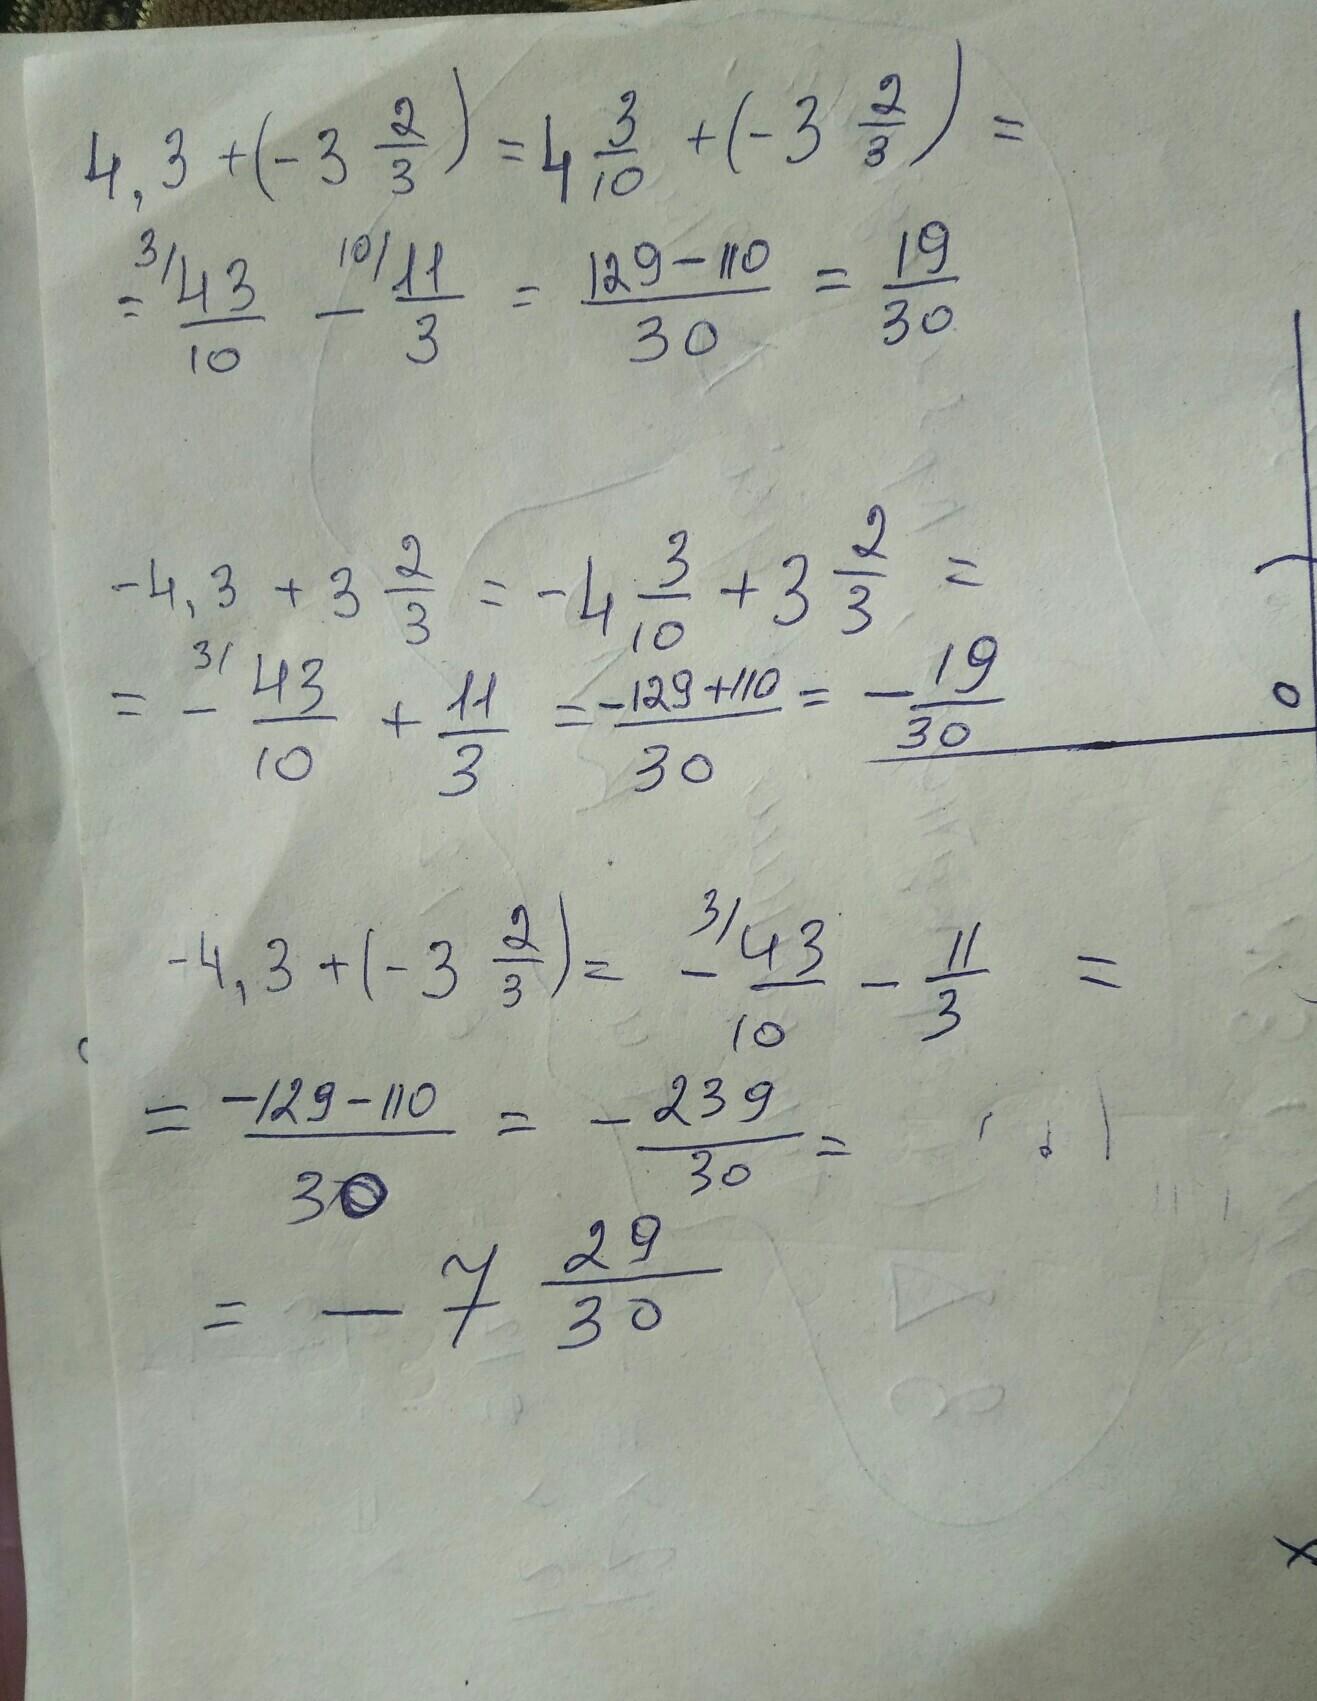 4,3 + (-3 2/3) = 4 3/10 + (-3 2/3) =
= 3/ 43/10 - 10/ 11/3 = (129-110)/30 = 19/30
-4,3 + 3 2/3 = -4 3/10 + 3 2/3 =
= - 3/ 43/10 + 11/3 = (-129+110)/30 = - 19/30
0
-4,3 + (-3 2/3) = - 3/ 43/10 - 11/3 =
= (-129-110)/30 = - 239/30 =
= - 7 29/30
x